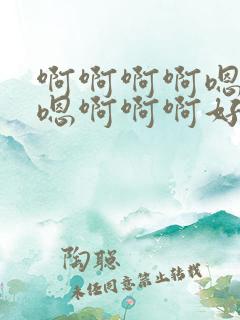 啊啊啊啊嗯
嗯啊啊啊好
陶聪
未经同意禁止转载